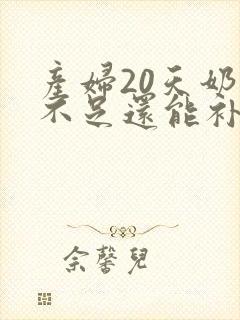 產婦20天奶
不足還能补
余馨兒